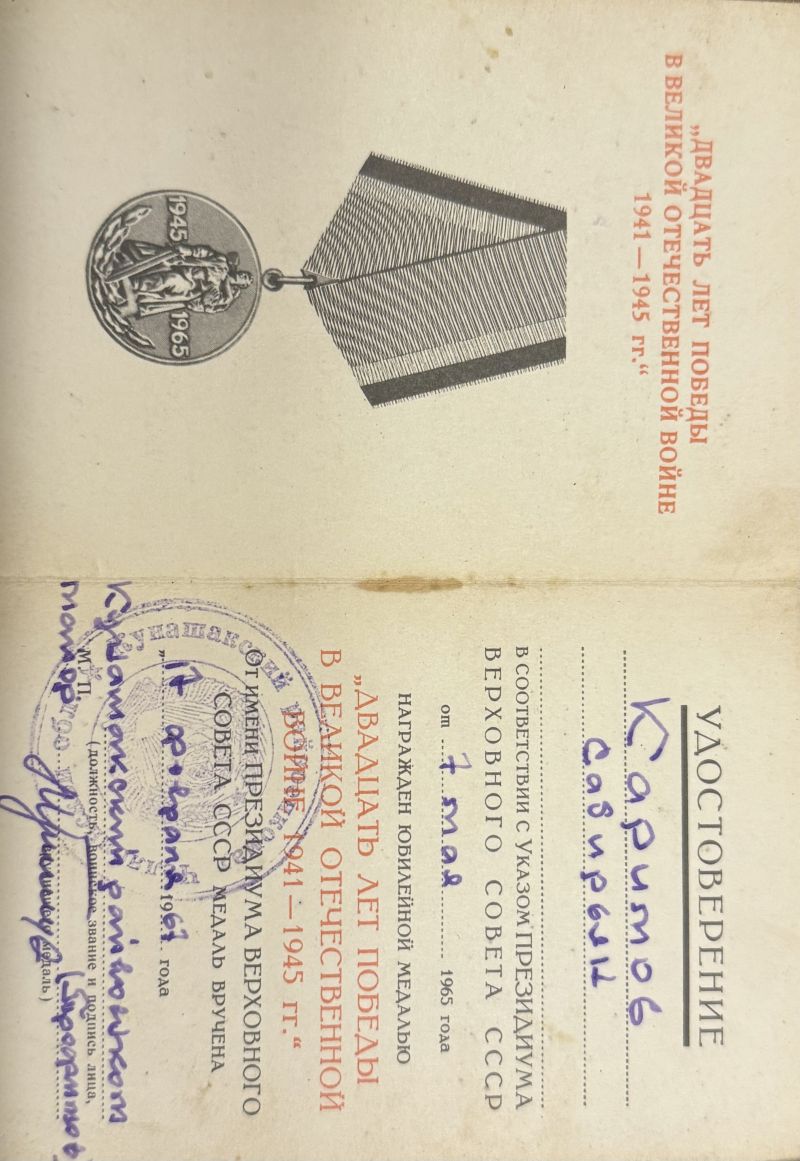 „ДВАДЦАТЬ ЛЕТ ПОБЕДЫ
В ВЕЛИКОЙ ОТЕЧЕСТВЕННОЙ ВОЙНЕ
1941—1945 гг.“
1945 1965
УДОСТОВЕРЕНИЕ
Каримов
Сабирьян
В СООТВЕТСТВИИ С УКАЗОМ ПРЕЗИДИУМА
ВЕРХОВНОГО СОВЕТА СССР
от 7 мая 1965 года
НАГРАЖДЕН ЮБИЛЕЙНОЙ МЕДАЛЬЮ
„ДВАДЦАТЬ ЛЕТ ПОБЕДЫ
В ВЕЛИКОЙ ОТЕЧЕСТВЕННОЙ
ВОЙНЕ 1941—1945 гг.“
ОТ ИМЕНИ ПРЕЗИДИУМА ВЕРХОВНОГО
СОВЕТА СССР МЕДАЛЬ ВРУЧЕНА
„17 февраля 1967 года
Кунашакский райвоенком
М. П. (должность, воинское звание и подпись лица,
майор
медаль)
Кунашакский